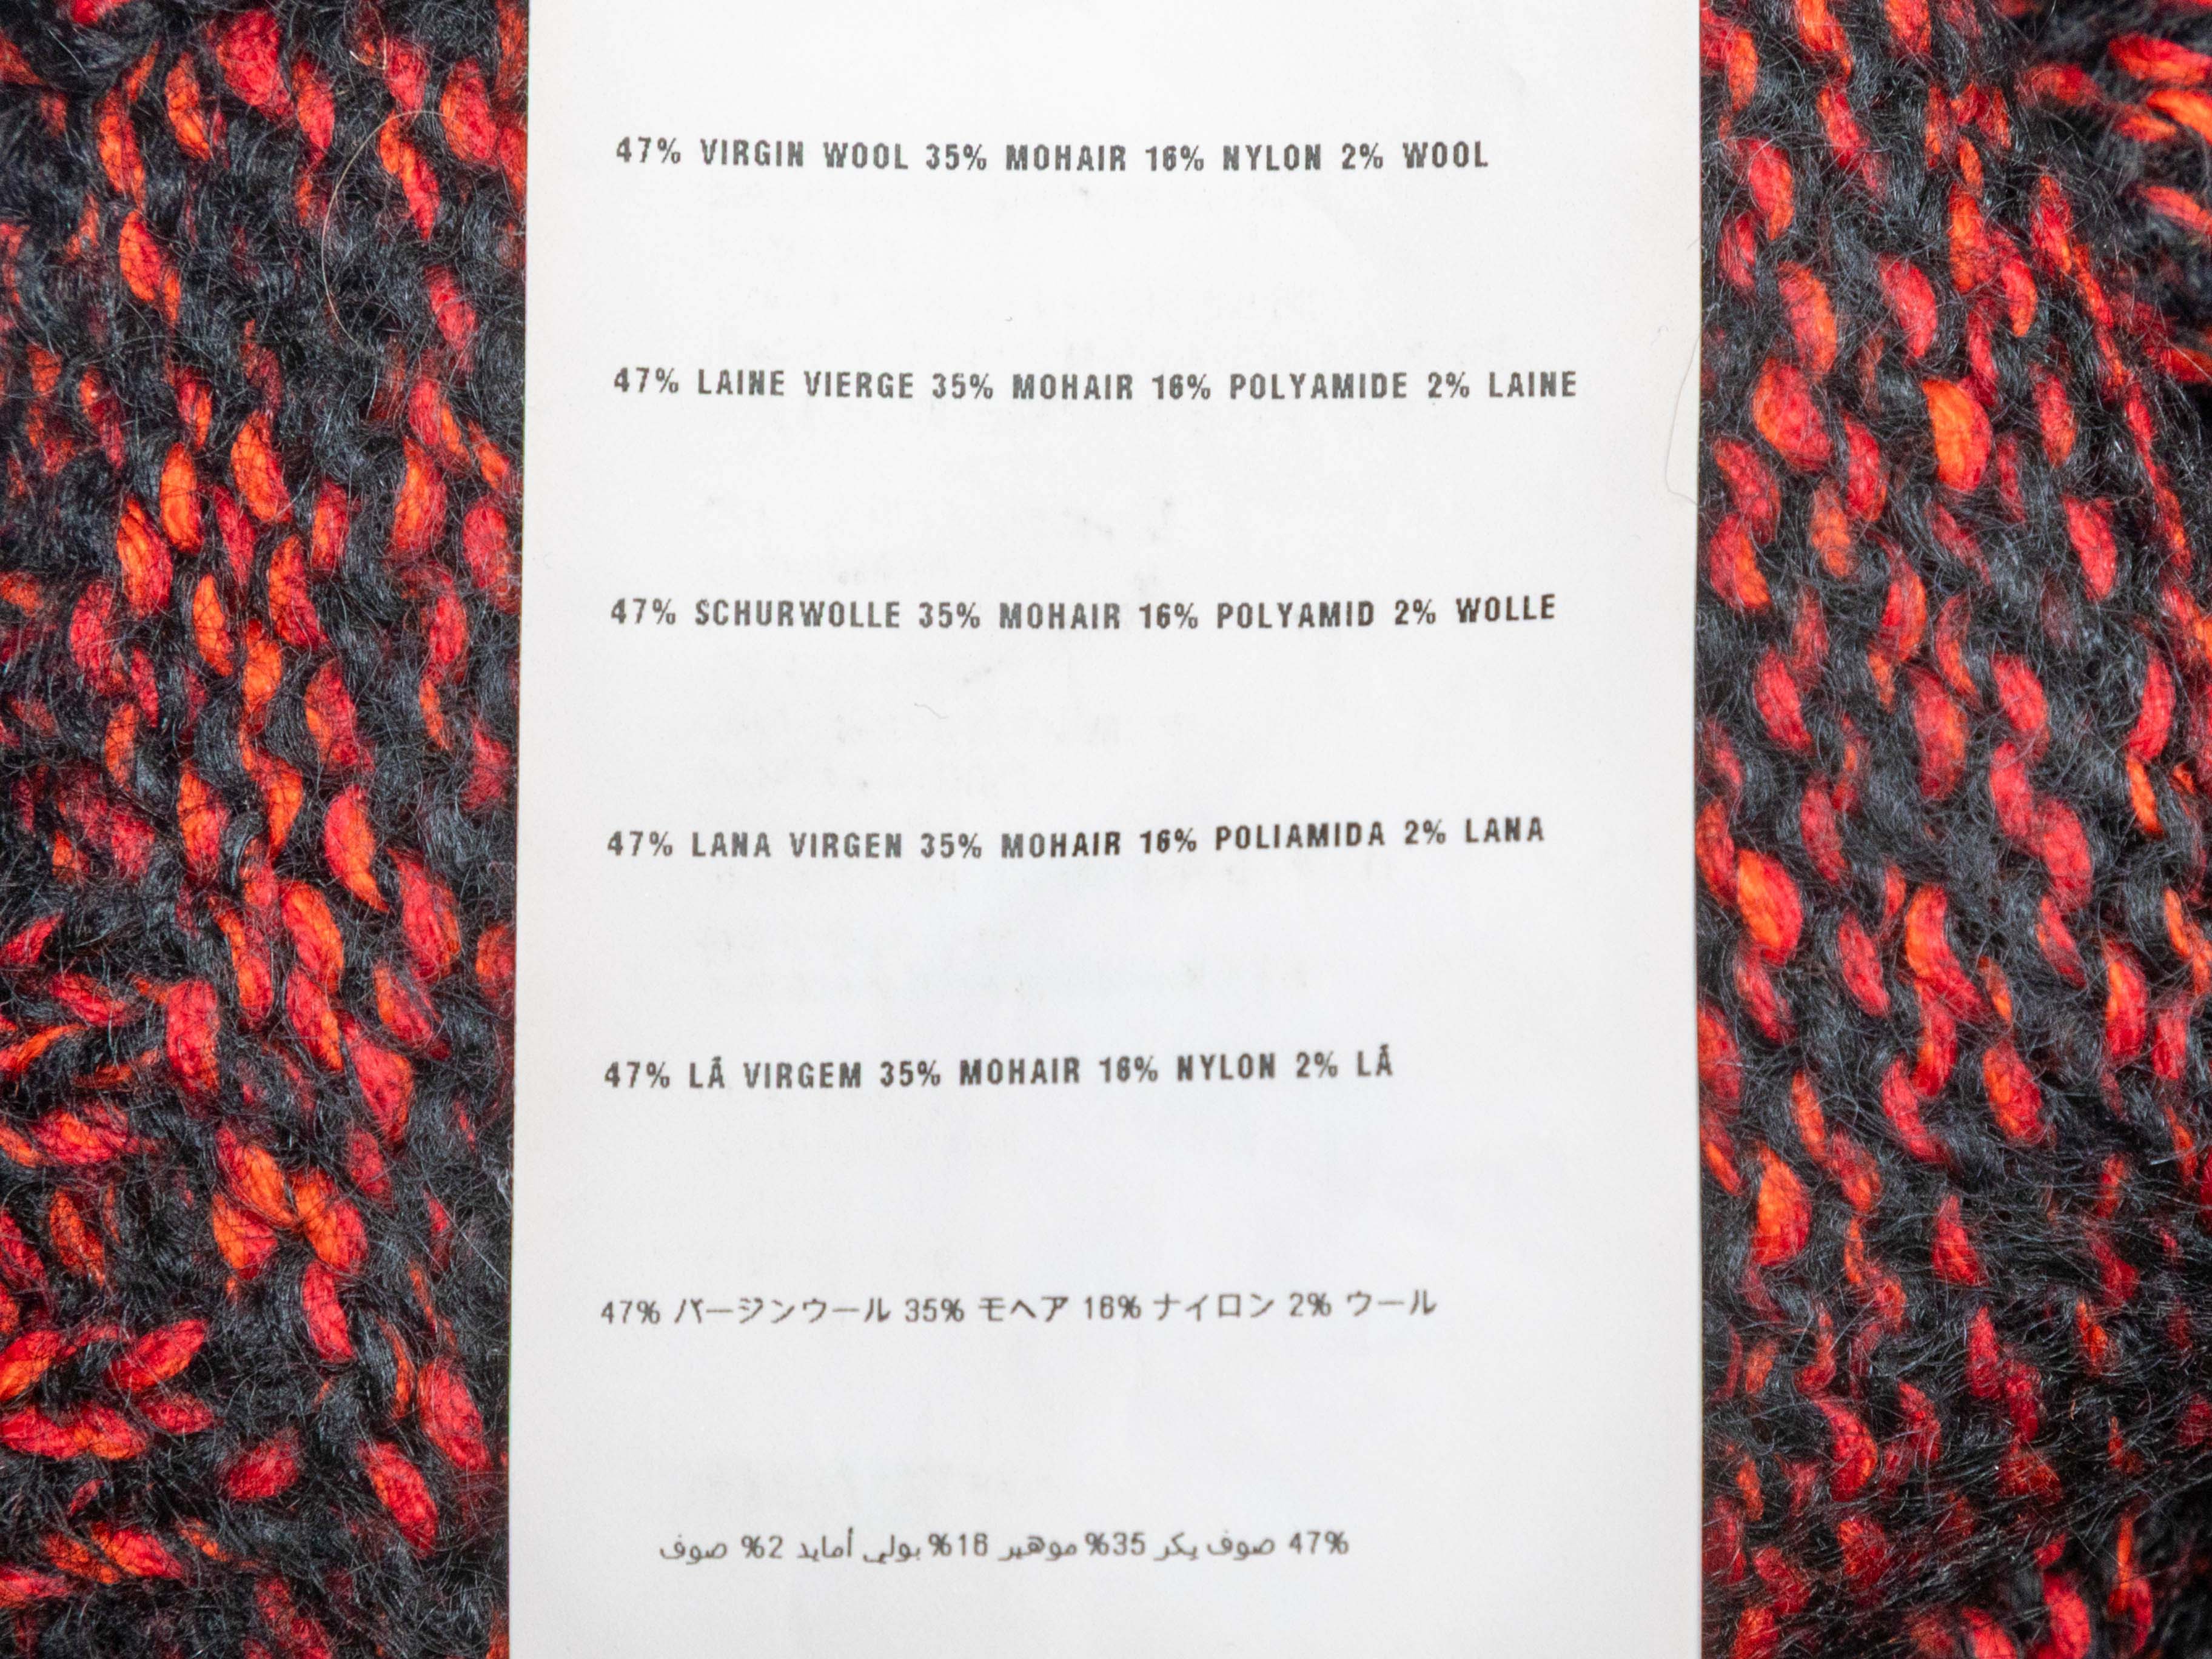 47% VIRGIN WOOL 35% MOHAIR 16% NYLON 2% WOOL
47% LAINE VIERGE 35% MOHAIR 16% POLYAMIDE 2% LAINE
47% SCHURWOLLE 35% MOHAIR 16% POLYAMID 2% WOLLE
47% LANA VIRGEN 35% MOHAIR 16% POLIAMIDA 2% LANA
47% LÃ VIRGEM 35% MOHAIR 16% NYLON 2% LÃ
47% バージンウール 35% モヘア 16% ナイロン 2% ウール
47% صوف بكر 35% موهير 16% بولي أمايد 2% صوف